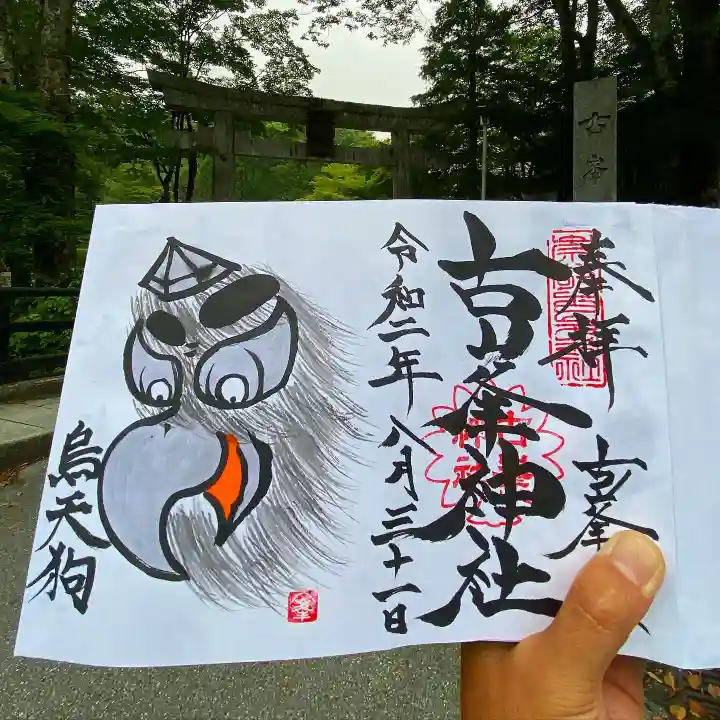 奉拝
古峯
古峯神社
令和二年八月三十一日
烏天狗
古峯